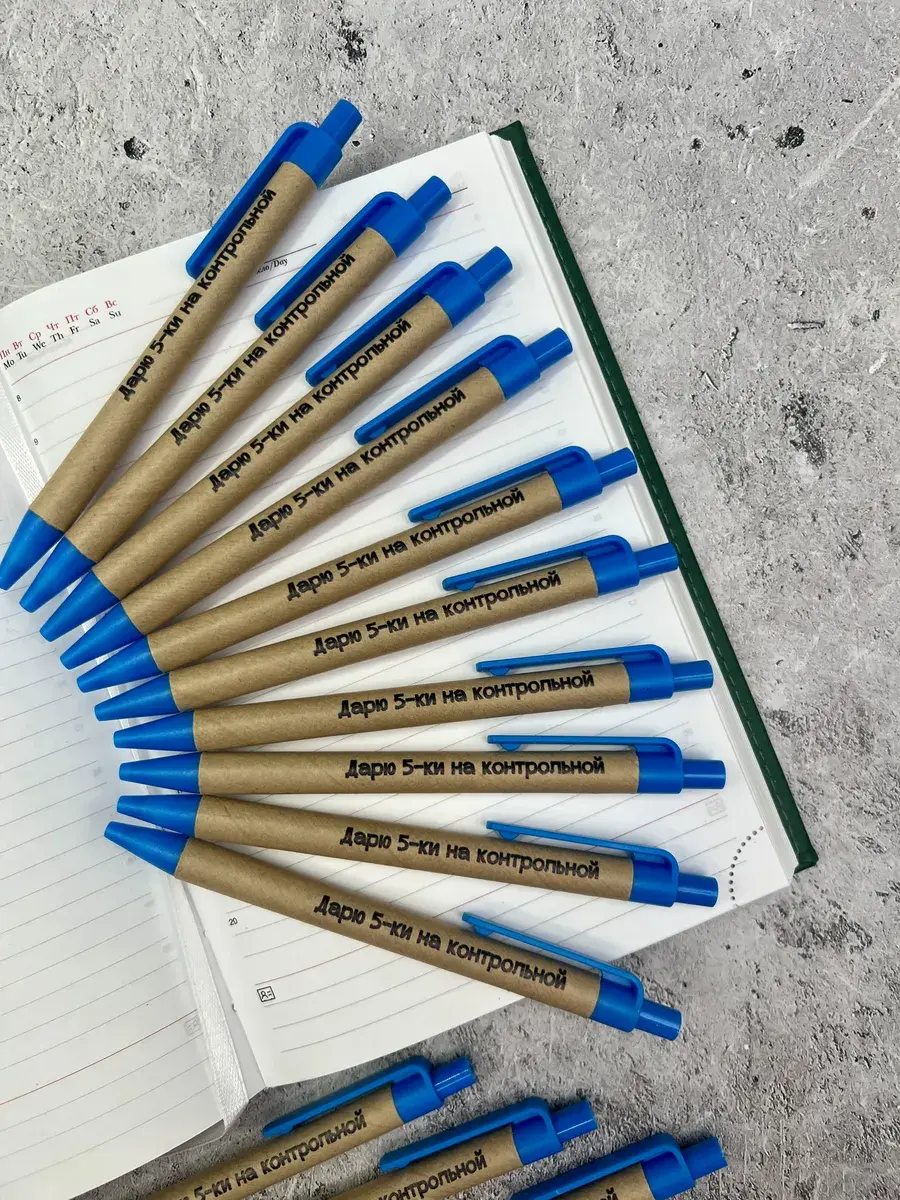 Пн Вт Ср Чт Пт Сб Вс
Mo Tu We Th Fr Sa Su
/Day
8
9
Дарю 5-ки на контрольной
Дарю 5-ки на контрольной
Дарю 5-ки на контрольной
Дарю 5-ки на контрольной
Дарю 5-ки на контрольной
Дарю 5-ки на контрольной
Дарю 5-ки на контрольной
Дарю 5-ки на контрольной
Дарю 5-ки на контрольной
Дарю 5-ки на контрольной
20
5-ки на контрольной
контрольной